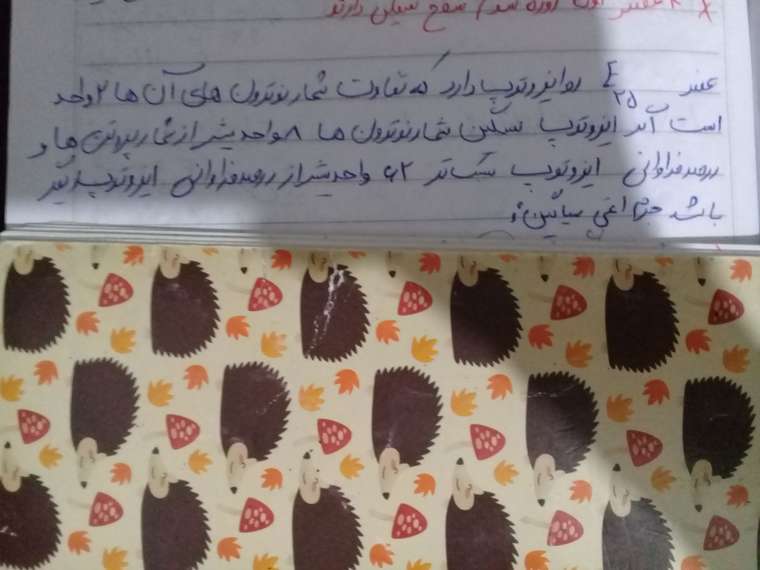 سطح سیلی دارند
عنصر ₂₅E دو ایزوتوپ دارد که تفاوت شمار نوترون های آن ها ۲ واحد
است اگر ایزوتوپ سنگین شمار نوترون ها ۸ واحد بیشتر از شمار پروتون ها و
درصد فراوانی ایزوتوپ سبک تر ۶۲ واحد بیشتر از درصد فراوانی ایزوتوپ دیگر
باشد جرم اتمی میانگین؟